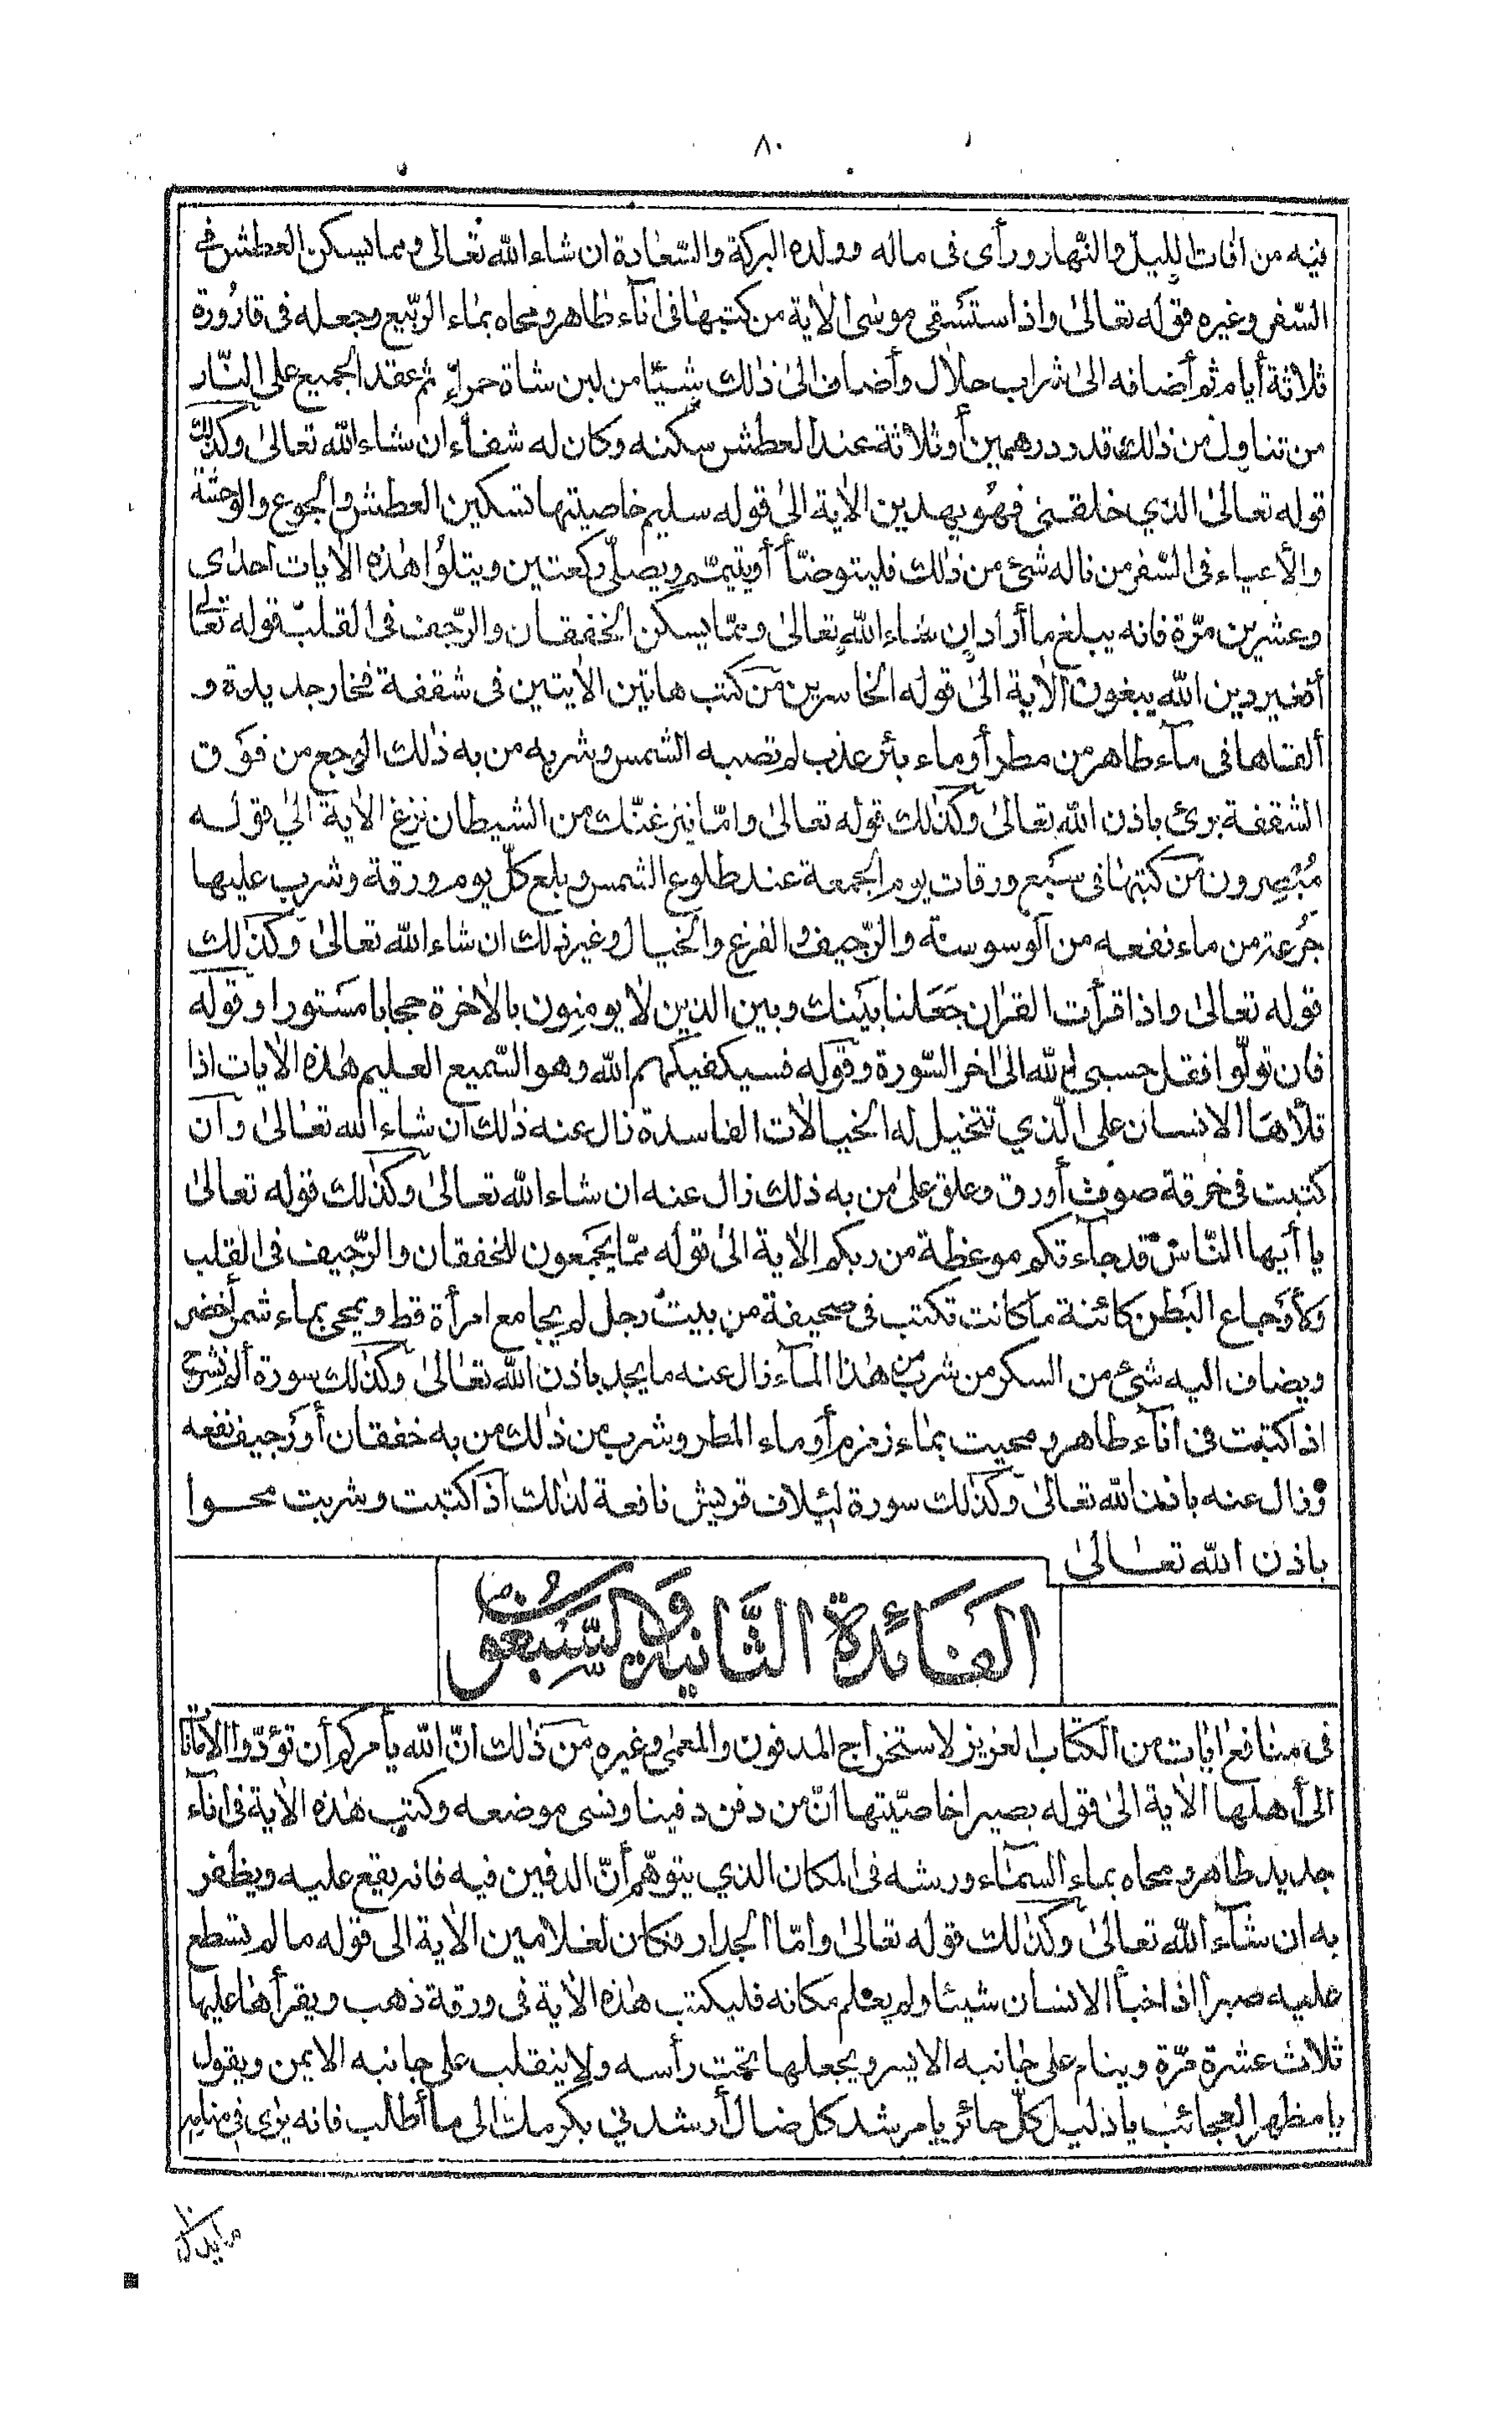 ٨٠
فيه من افات الليل والنهار ورأى فى ماله وولده البركة والسّعادة ان شاء الله تعالى ومما يسكن العطش فى
السّفر وغيره قوله تعالىٰ واذ استسقى موسى الاٰية من كتبها فى انآء طاهر ومحاه بماء الرّبيع وجعله فى قارُورة
ثلاثة أيام ثم أضافه الىٰ شراب حلال وأضاف الىٰ ذٰلك شيئا من لبن شاة حمراءٍ ثم عقد الجميع على النّار
من تناول من ذٰلك قدر درهمين أو ثلاثة عند العطش سكنه وكان له شفاء ان شاء الله تعالىٰ وكذٰلك
قوله تعالىٰ الذي خلقنى فهُو يهدين الاٰية الىٰ قوله سليم خاصيتها تسكين العطش والجوع والوحشة
والأعياء فى السّفر من ناله شئ من ذٰلك فليتوضّأ أو يتيمّم ويصلّى ركعتين ويتلُوا هٰذه الاٰيات احدٰى
وعشرين مرّة فانه يبلغ ما أراد ان شاء الله تعالىٰ وممّا يسكن الخفقان والرّجف فى القلب قوله تعالىٰ
أفغير دين الله يبغون الاٰية الىٰ قوله الخاسرين من كتب هاتين الاٰيتين فى شقفة فخار جديدة و
ألقاها فى مآء طاهر من مطر أو ماء بئر عذب لم تصبه الشمس وشربه من به ذٰلك الوجع من فوَق
الشقفة برئ باذن الله تعالىٰ وكذٰلك قوله تعالىٰ وامّا ينزغنّك من الشيطان نزغ الاٰية الىٰ قوله
مُبْصِرون من كتبها فى سَبع ورقات يوم الجمعة عند طلوع الشمس وبلع كلّ يوم ورقة وشرب عليها
جُرعة من ماء نفعه من الوسوسة والرّجيف والفزع والخيال وغير ذٰلك ان شاء الله تعالىٰ وكذٰلك
قوله تعالىٰ واذا قرأت القرٰان جَعَلنا بَيْنك وبين الذين لا يومنون بالاٰخرة حجابا مَستورا وقوله
فان تولّوا فقل حسبى الله الىٰ اٰخر السّورة وقوله فسيكفيكهم الله وهو السّميع العليم هٰذه الاٰيات اذا
تلاهَا الانسان على الّذي تتخيل له الخيالات الفاسدة زال عنه ذٰلك ان شاء الله تعالىٰ وان
كتبت فى خرقة صوف أو رق وعلق علىٰ من به ذلك زال عنه ان شاء الله تعالىٰ وكذٰلك قوله تعالىٰ
يا أيها النّاس قد جآءتكم موعظة من ربكم الاٰية الىٰ قوله ممّا يجمَعون للخفقان والرّجيف فى القلب
ولأوَجاع البَطن كائنة ما كانت تكتب فى صحيفة من بيت رجل لم يجامع امرأة قط ويمحى بماء شمر أخضر
ويضاف اليه شئ من السكر من شرب من هٰذا المآء زال عنه ما يجد باذن الله تعَالىٰ وكذٰلك سورة ألم نشرح
اذا كتبت فى انآء طاهر ومحيت بماء زمزم أو ماء المطر وشرب من ذٰلك من به خفقان أو رَجيف نفعه
وزال عنه باذن الله تعالىٰ وكذٰلك سورة لئيلاف قريش نافعة لذٰلك اذا كتبت وشربت محوا
باذن الله تعــالىٰ
الفَائدة الثَّانية والسَّبعُون
فى منافع اٰيات من الكتاب العزيز لاستخراج المدفون والمعمى وغيره من ذٰلك انّ الله يأمركم أن تؤدّوا الأمانات
الىٰ أهلها الاٰية الىٰ قوله بصيرا خاصّيّتها انّ من دفن دفينا ونسى موضعه وكتب هٰذه الاٰية فى اناء
جديد طاهر ومحاه بماء السمآء ورشه فى المكان الذي يتوهّم أنّ الدفين فيه فانه يقع عليه ويظفر
به ان شآء الله تعالىٰ وكذٰلك قوله تعالىٰ وامّا الجدار فكان لغلامين الاٰية الى قوله ما لم تسطع
عليه صبرا اذا خبأ الانسان شيئا ولم يعلم مكانه فليكتب هٰذه الاٰية فى ورقة ذهب ويقرأها عليها
ثلاث عشرة مرّة وينام على جانبه الايسر ويجعلها تحت رأسه ولا ينقلب على جانبه الايمن ويقول
يا مظهر العجائب يا دليل كلّ حائر يا مرشد كل ضال أرشدني بكرمك الى ما أطلب فانه يرٰى فى منامه